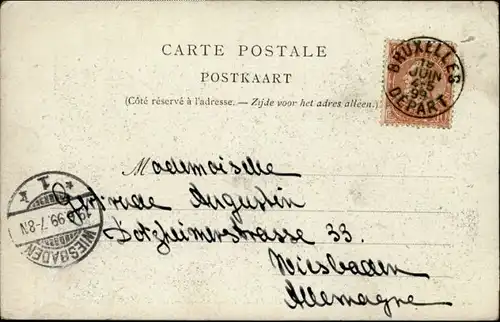 CARTE POSTALE
POSTKAART
(Côté réservé à l'adresse. — Zijde voor het adres alleen.)
BRUXELLES
JUIN
DEPART
Mademoiselle
Gertrude Augustin
Dotzheimerstrasse 33.
Wiesbaden
Allemagne
* 1 *
19.6.99.7-8N
WIESBADEN